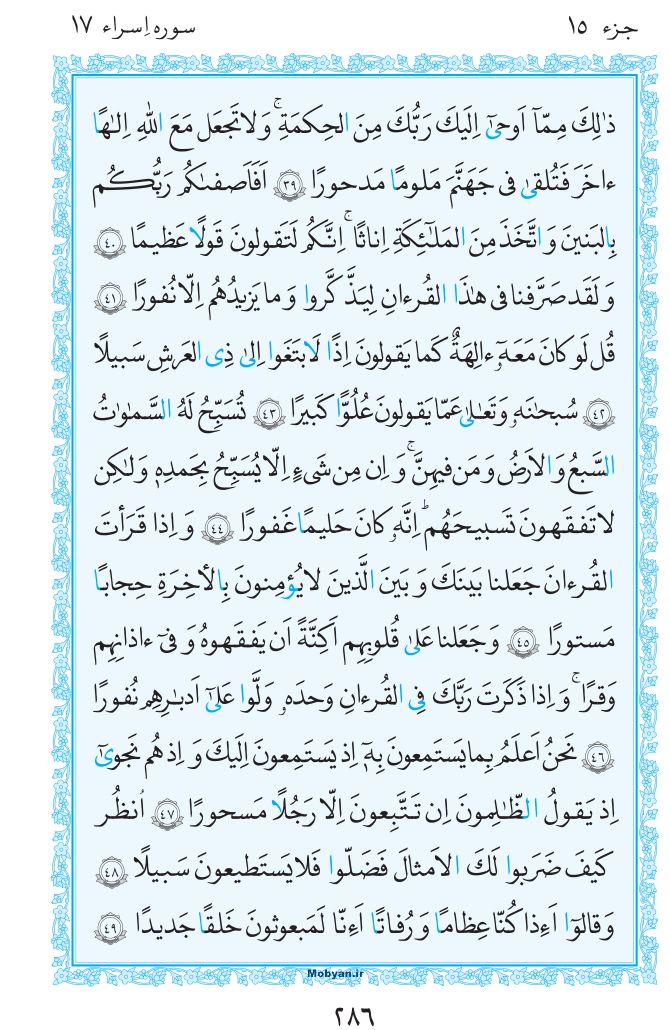 جزء ١٥
سوره اِسراء ١٧
ذٰلِكَ مِمّآ اَوحىٰٓ اِلَيكَ رَبُّكَ مِنَ الحِكمَةِ ۚ وَ لا تَجعَل مَعَ اللّٰهِ اِلـٰهًا
ءاخَرَ فَتُلقىٰ فى جَهَنَّمَ مَلومًا مَدحورًا ﴿٣٩﴾ اَفَاَصفىٰكُم رَبُّكُم
بِالبَنينَ وَ اتَّخَذَ مِنَ المَلـٰٓئِكَةِ اِناثًا ۚ اِنَّكُم لَتَقولونَ قَولًا عَظيمًا ﴿٤٠﴾
وَ لَقَد صَرَّفنا فى هـٰذَا القُرءانِ لِيَذَّكَّروا وَ ما يَزيدُهُم اِلّا نُفورًا ﴿٤١﴾
قُل لَو كانَ مَعَهٓۥ ءالِهَةٌ كَما يَقولونَ اِذًا لَابتَغَوا اِلىٰ ذِى العَرشِ سَبيلًا
﴿٤٢﴾ سُبحـٰنَهۥ وَ تَعـٰلىٰ عَمّا يَقولونَ عُلُوًّا كَبيرًا ﴿٤٣﴾ تُسَبِّحُ لَهُ السَّمـٰوٰتُ
السَّبعُ وَ الاَرضُ وَ مَن فيهِنَّ ۚ وَ اِن مِن شَىءٍ اِلّا يُسَبِّحُ بِحَمدِهۦ وَ لـٰكِن
لا تَفقَهونَ تَسبيحَهُم ۗ اِنَّهۥ كانَ حَليمًا غَفورًا ﴿٤٤﴾ وَ اِذا قَرَأتَ
القُرءانَ جَعَلنا بَينَكَ وَ بَينَ الَّذينَ لا يُؤمِنونَ بِالأخِرَةِ حِجابًا
مَستورًا ﴿٤٥﴾ وَ جَعَلنا عَلىٰ قُلوبِهِم اَكِنَّةً اَن يَفقَهوهُ وَ فىٓ ءاذانِهِم
وَقرًا ۚ وَ اِذا ذَكَرتَ رَبَّكَ فِى القُرءانِ وَحدَهۥ وَلَّوا عَلىٰٓ اَدبـٰرِهِم نُفورًا
﴿٤٦﴾ نَحنُ اَعلَمُ بِما يَستَمِعونَ بِهٓۦ اِذ يَستَمِعونَ اِلَيكَ وَ اِذ هُم نَجوىٰٓ
اِذ يَقولُ الظّـٰلِمونَ اِن تَتَّبِعونَ اِلّا رَجُلًا مَسحورًا ﴿٤٧﴾ اُنظُر
كَيفَ ضَرَبوا لَكَ الاَمثالَ فَضَلّوا فَلا يَستَطيعونَ سَبيلًا ﴿٤٨﴾
وَ قالوٓا اَءِذا كُنّا عِظامًا وَ رُفاتًا اَءِنّا لَمَبعوثونَ خَلقًا جَديدًا ﴿٤٩﴾
Mobyan.ir
٢٨٦